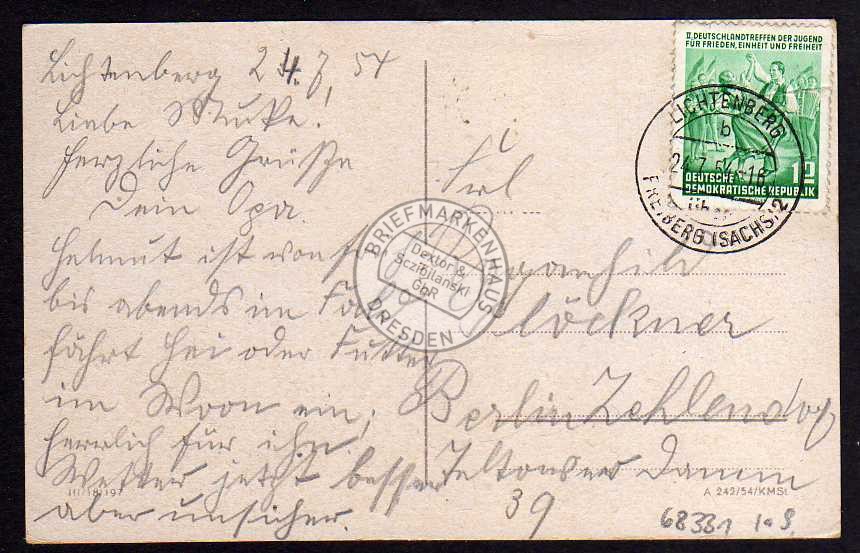 Lichtenberg 24.7.54
Liebe Mucke!
Herzliche Grüße
Dein Opa.
Helmut ist von
bis abends im
fährt Heu oder Futter
im Moon ein,
herrlich für ihn
Wetter jetzt besser
aber unsicher.
III/18/197
II. DEUTSCHLANDTREFFEN DER JUGEND
FÜR FRIEDEN, EINHEIT UND FREIHEIT
DEUTSCHE
DEMOKRATISCHE REPUBLIK
LICHTENBERG
b
24.7.54-18
über
FREIBERG (SACHS) 2
Frl
Klöckner
Berlin Zehlendorf
Teltower Damm
39
A 242/54/KMSt.
68331 1a S,
BRIEFMARKENHAUS
Dextor &
Sczibilanski
GbR
DRESDEN